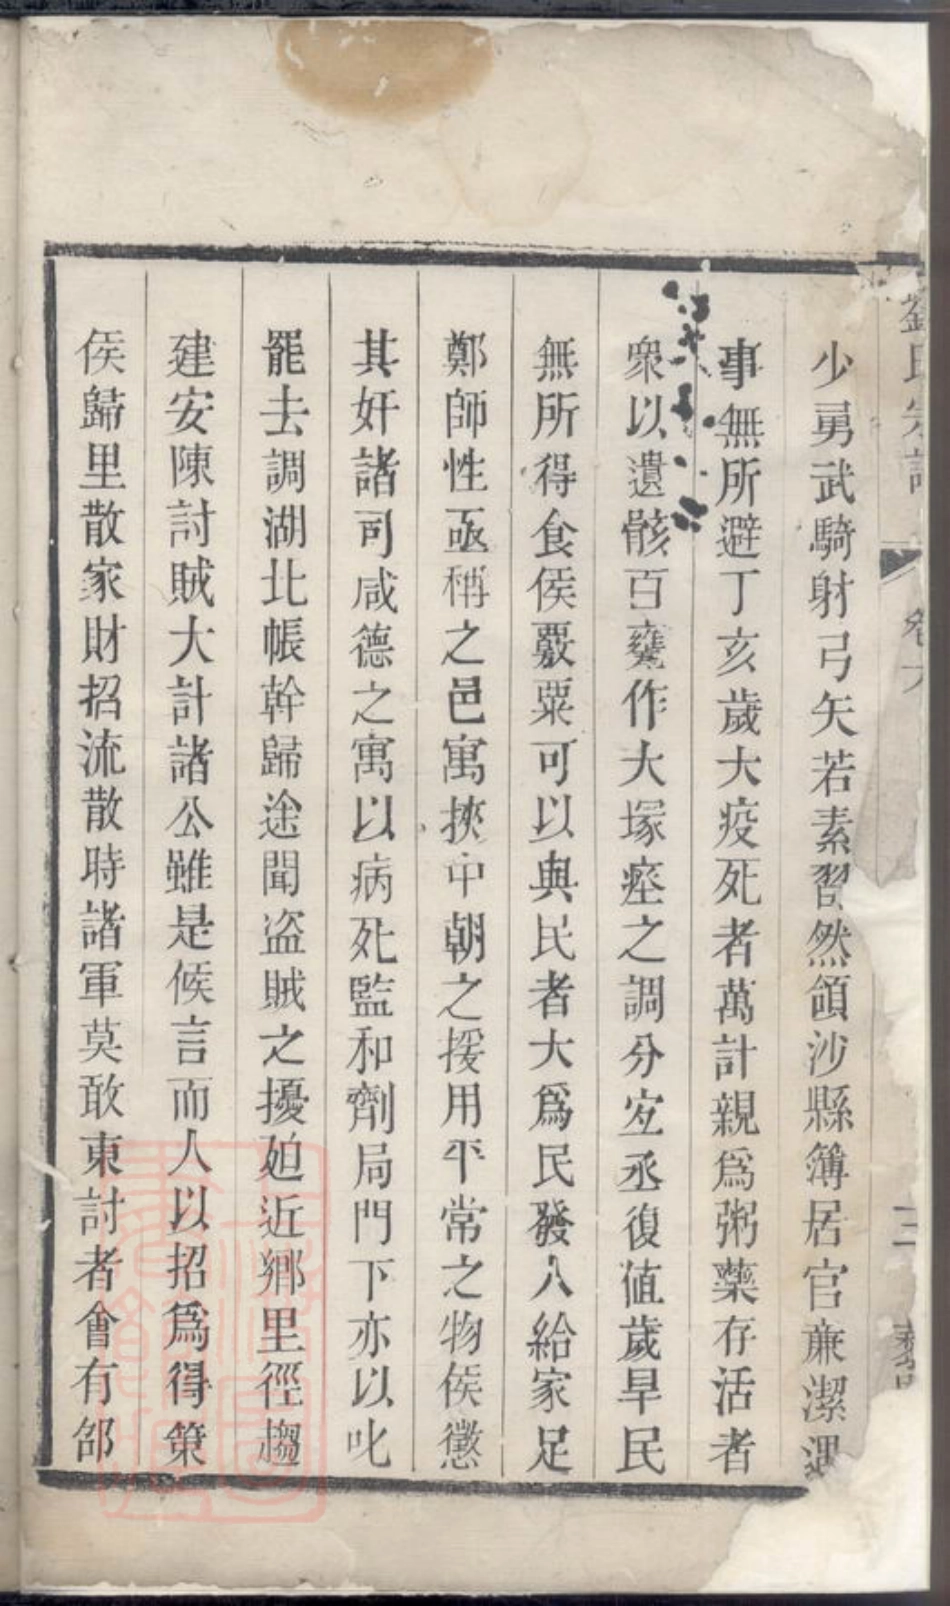 劉氏宗譜 卷六 三
少勇武騎射弓矢若素習然領沙縣簿居官廉潔遇
事無所避丁亥歲大疫死者萬計親爲粥藥存活者
衆以遺骸百甕作大塚瘞之調分宜丞復值歲旱民
無所得食侯覈粟可以與民者大爲民發人給家足
鄭師性亟稱之邑寓挾中朝之援用平常之物侯懲
其奸諸司咸德之寓以病死監和劑局門下亦以叱
罷去調湖北帳幹歸途聞盗賊之擾廹近鄉里徑趨
建安陳討賊大計諸公雖是候言而人以招爲得策
侯歸里散家財招流散時諸軍莫敢東討者會有郃